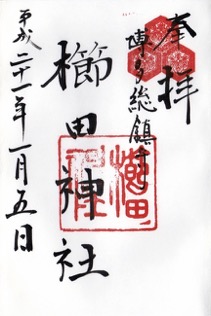 奉拝
博多総鎮守
櫛田神社
平成二十一年一月五日